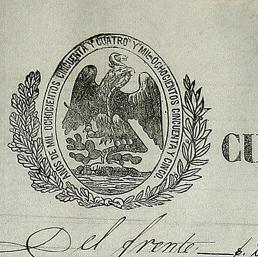 AÑOS DE MIL OCHOCIENTOS CINCUENTA Y CUATRO Y MIL OCHOCIENTOS CINCUENTA Y CINCO.
CU
Del frente